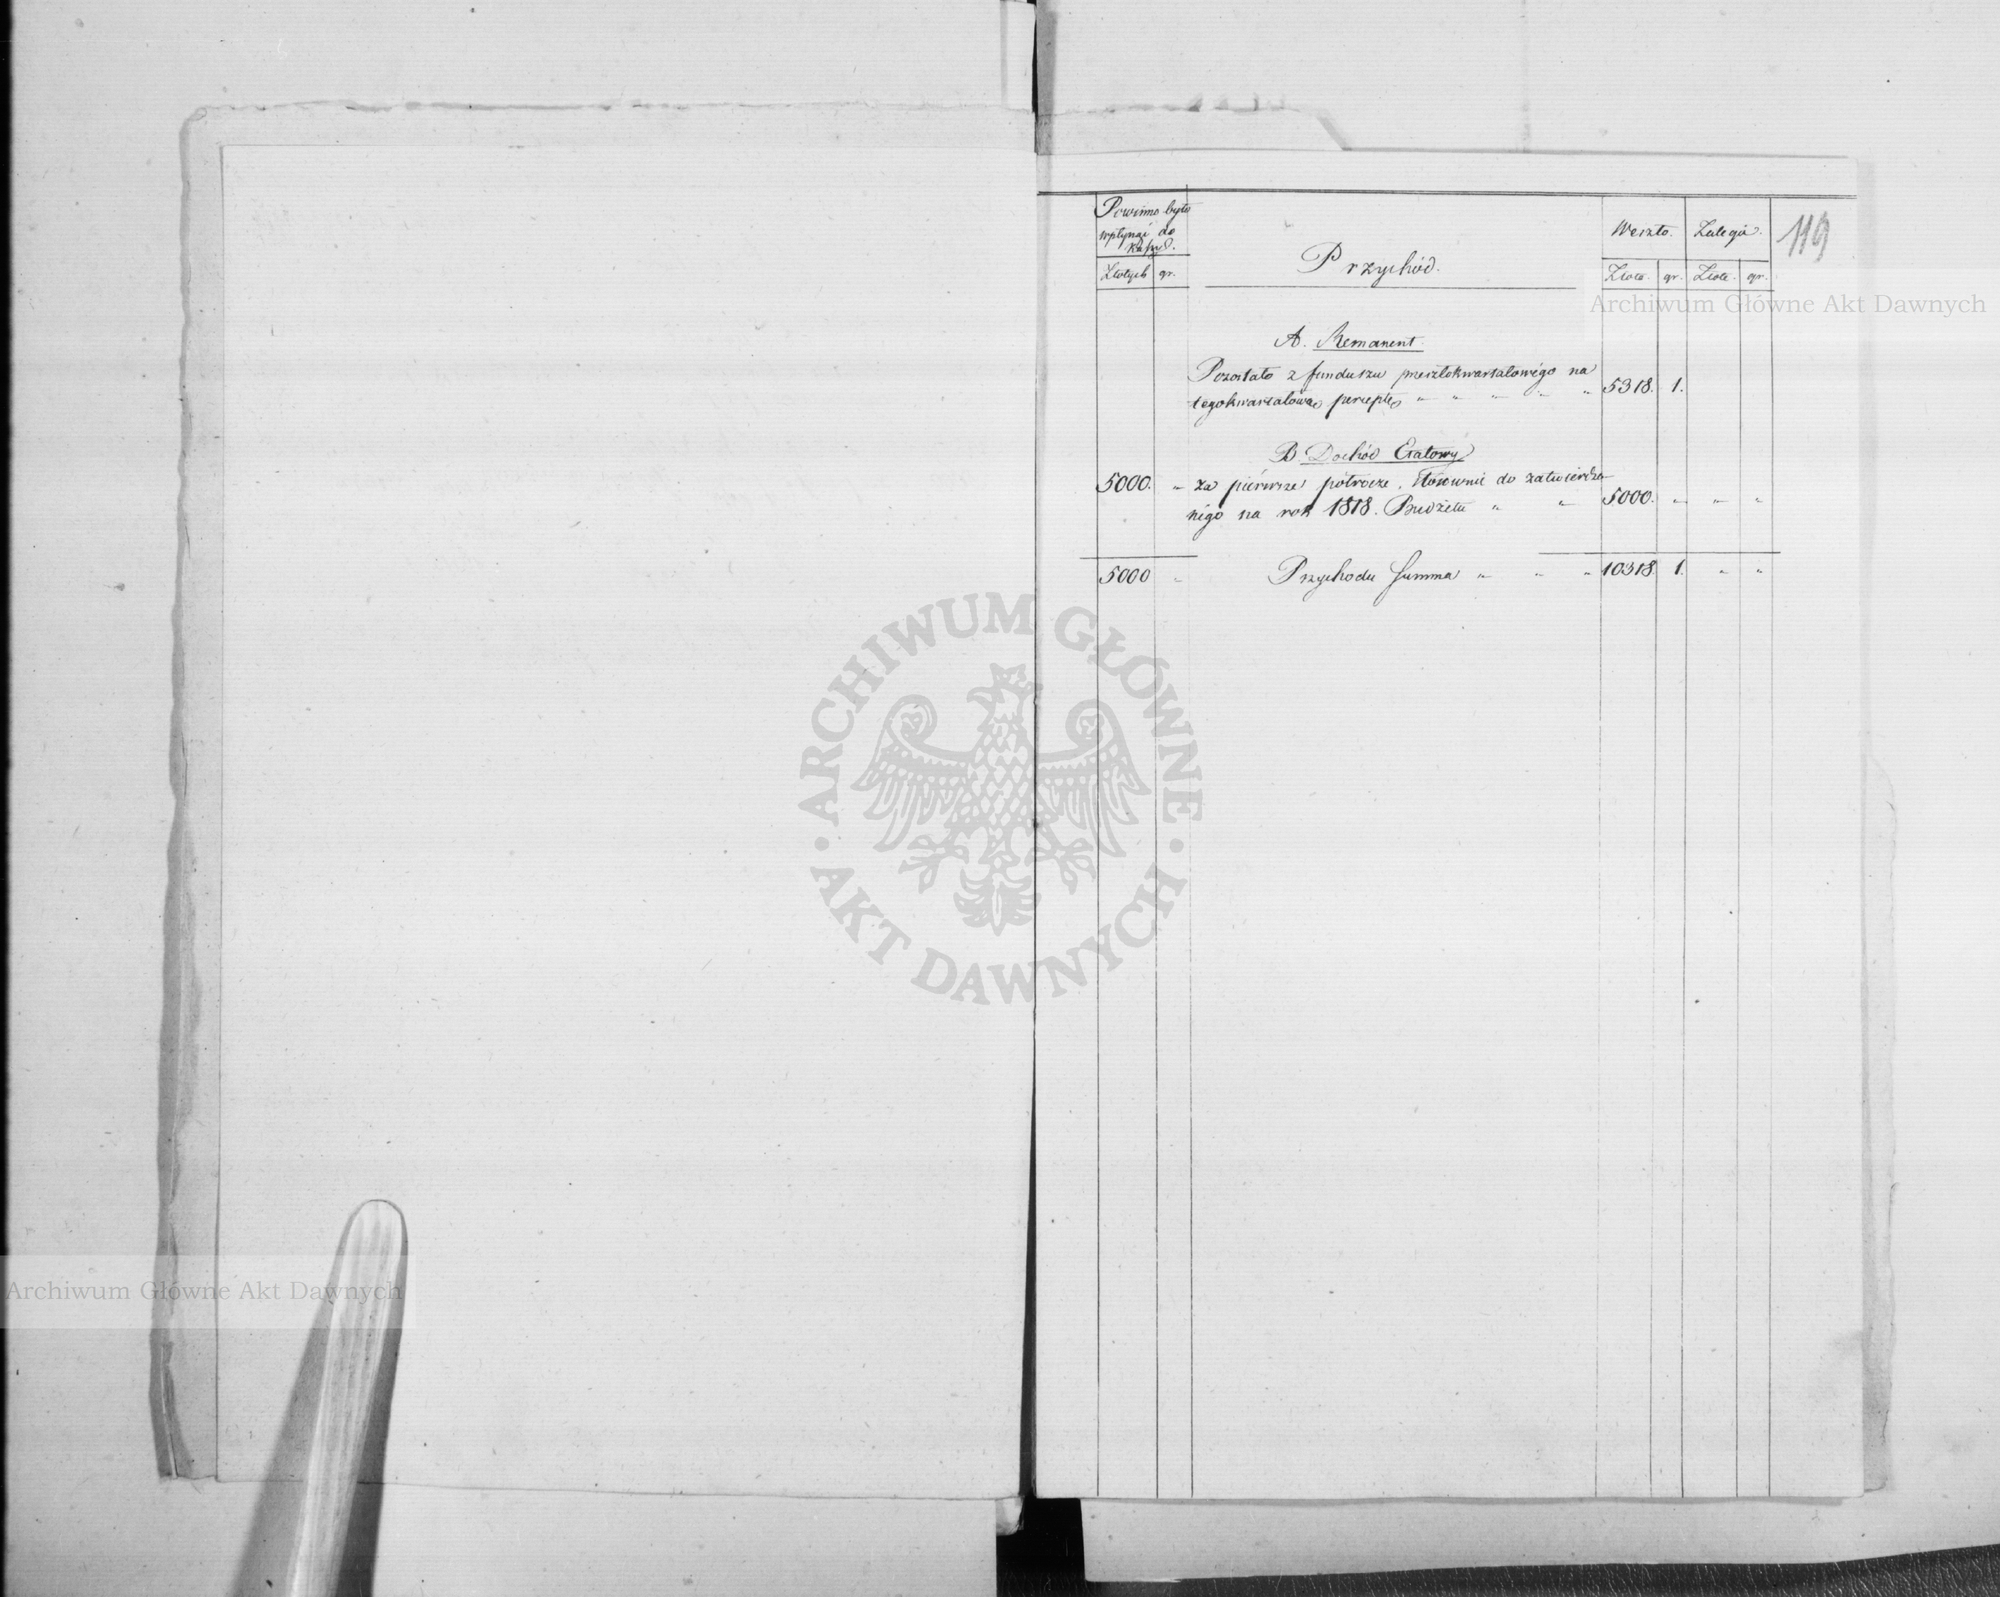 Powinno było
wpłynąć do
Kassy.
Złotych gr.
Przychód.
Weszło. Zalega.
Złote. gr. Złote. gr.
119
Archiwum Główne Akt Dawnych
A. Remanent.
Pozostało z funduszu przeszłokwartalowégo na
tegokwartalową perceptę „ „ „ „ „ 5318. 1.
B Dochód Etatowy
5000. „ za piérwsze półrocze, stósownie do zatwierdzo
négo na rok 1818. Budżetu „ „ 5000. „ „ „
5000 „ Przychodu Summa „ „ „ 10318. 1. „ „
ARCHIWUM GŁÓWNE
AKT DAWNYCH
Archiwum Główne Akt Dawnych